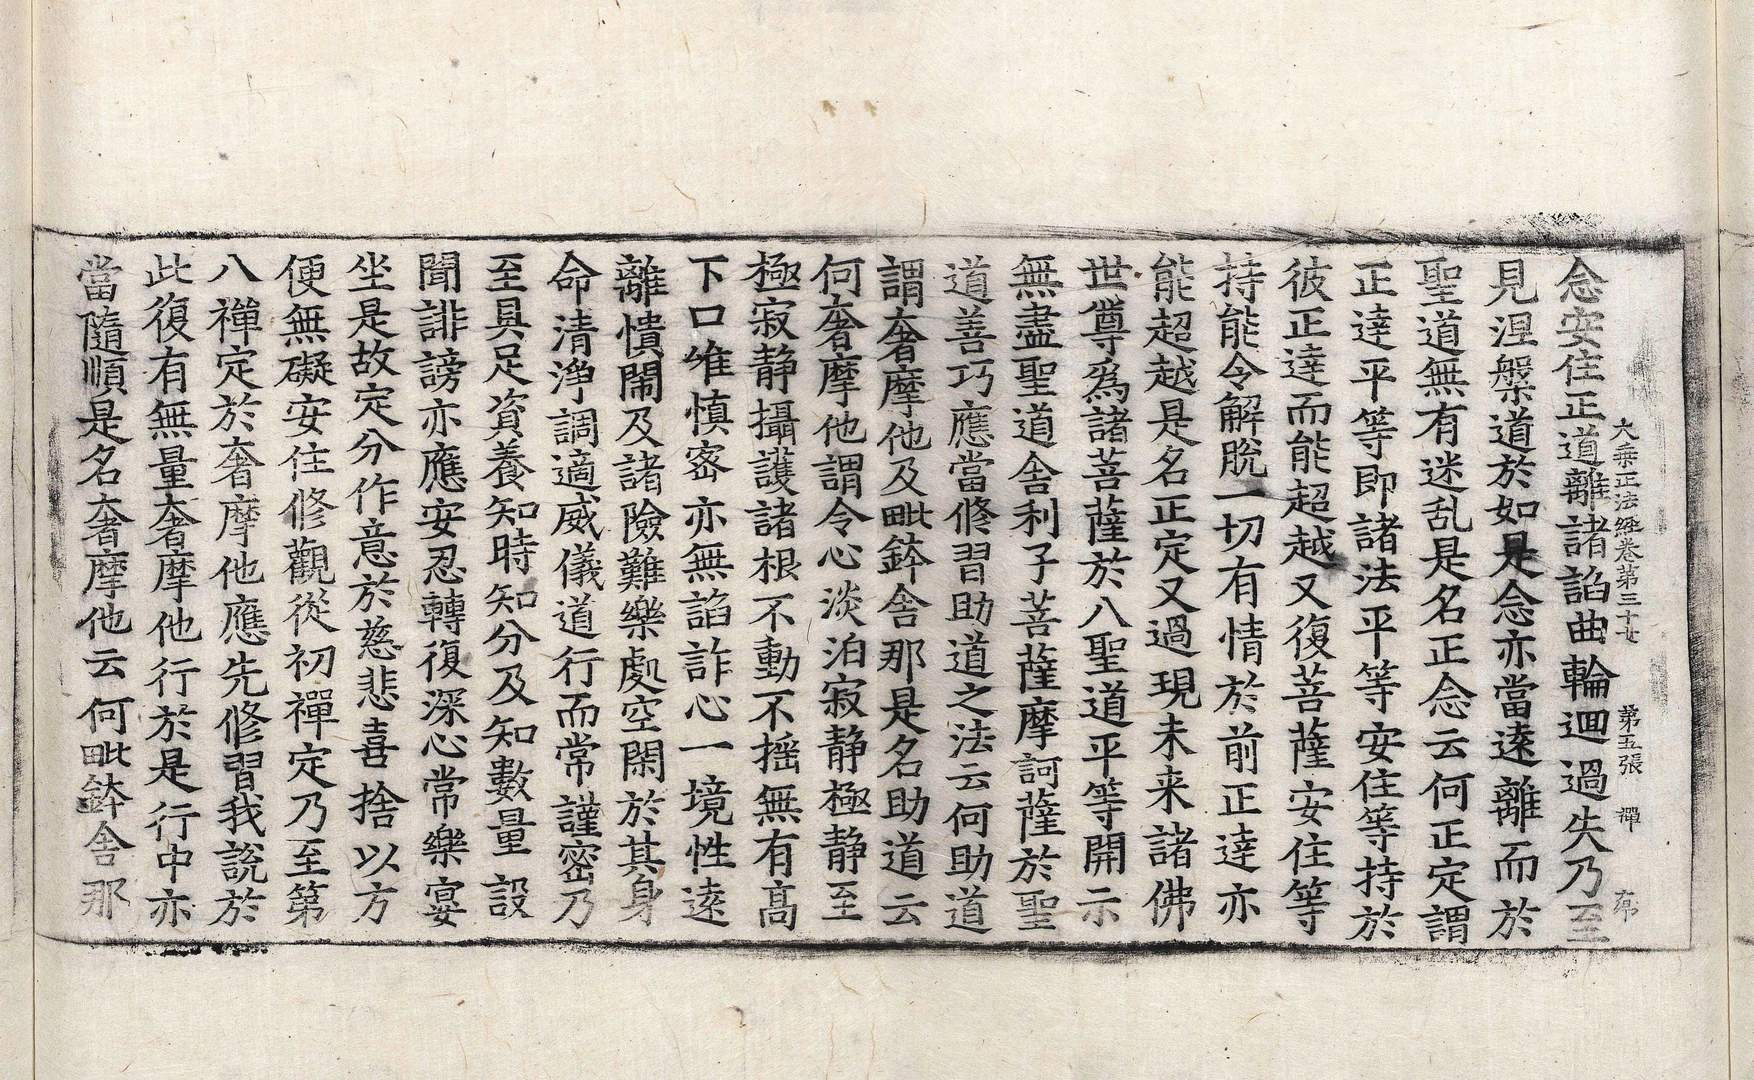 大乗正法經卷第三十七 第五張 禪
念安住正道離諸諂曲輪迴過失乃至
見涅槃道於如是念亦當遠離而於
聖道無有迷乱是名正念云何正定謂
正達平等即諸法平等安住等持於
彼正達而能超越又復菩薩安住等
持能令解脫一切有情於前正達亦
能超越是名正定又過現未来諸佛
世尊爲諸菩薩於八聖道平等開示
無盡聖道舍利子菩薩摩訶薩於聖
道善巧應當修習助道之法云何助道
謂奢摩他及毗鉢舍那是名助道云
何奢摩他謂令心淡泊寂静極静至
極寂静攝護諸根不動不摇無有髙
下口唯慎密亦無諂詐心一境性遠
離憒閙及諸險難樂處空閑於其身
命清淨調適威儀道行而常謹密乃
至具足資養知時知分及知數量設
聞誹謗亦應安忍轉復深心常樂宴
坐是故定分作意於慈悲喜捨以方
便無礙安住修觀從初禪定乃至第
八禪定於奢摩他應先修習我說於
此復有無量奢摩他行於是行中亦
當隨順是名奢摩他云何毗鉢舍那